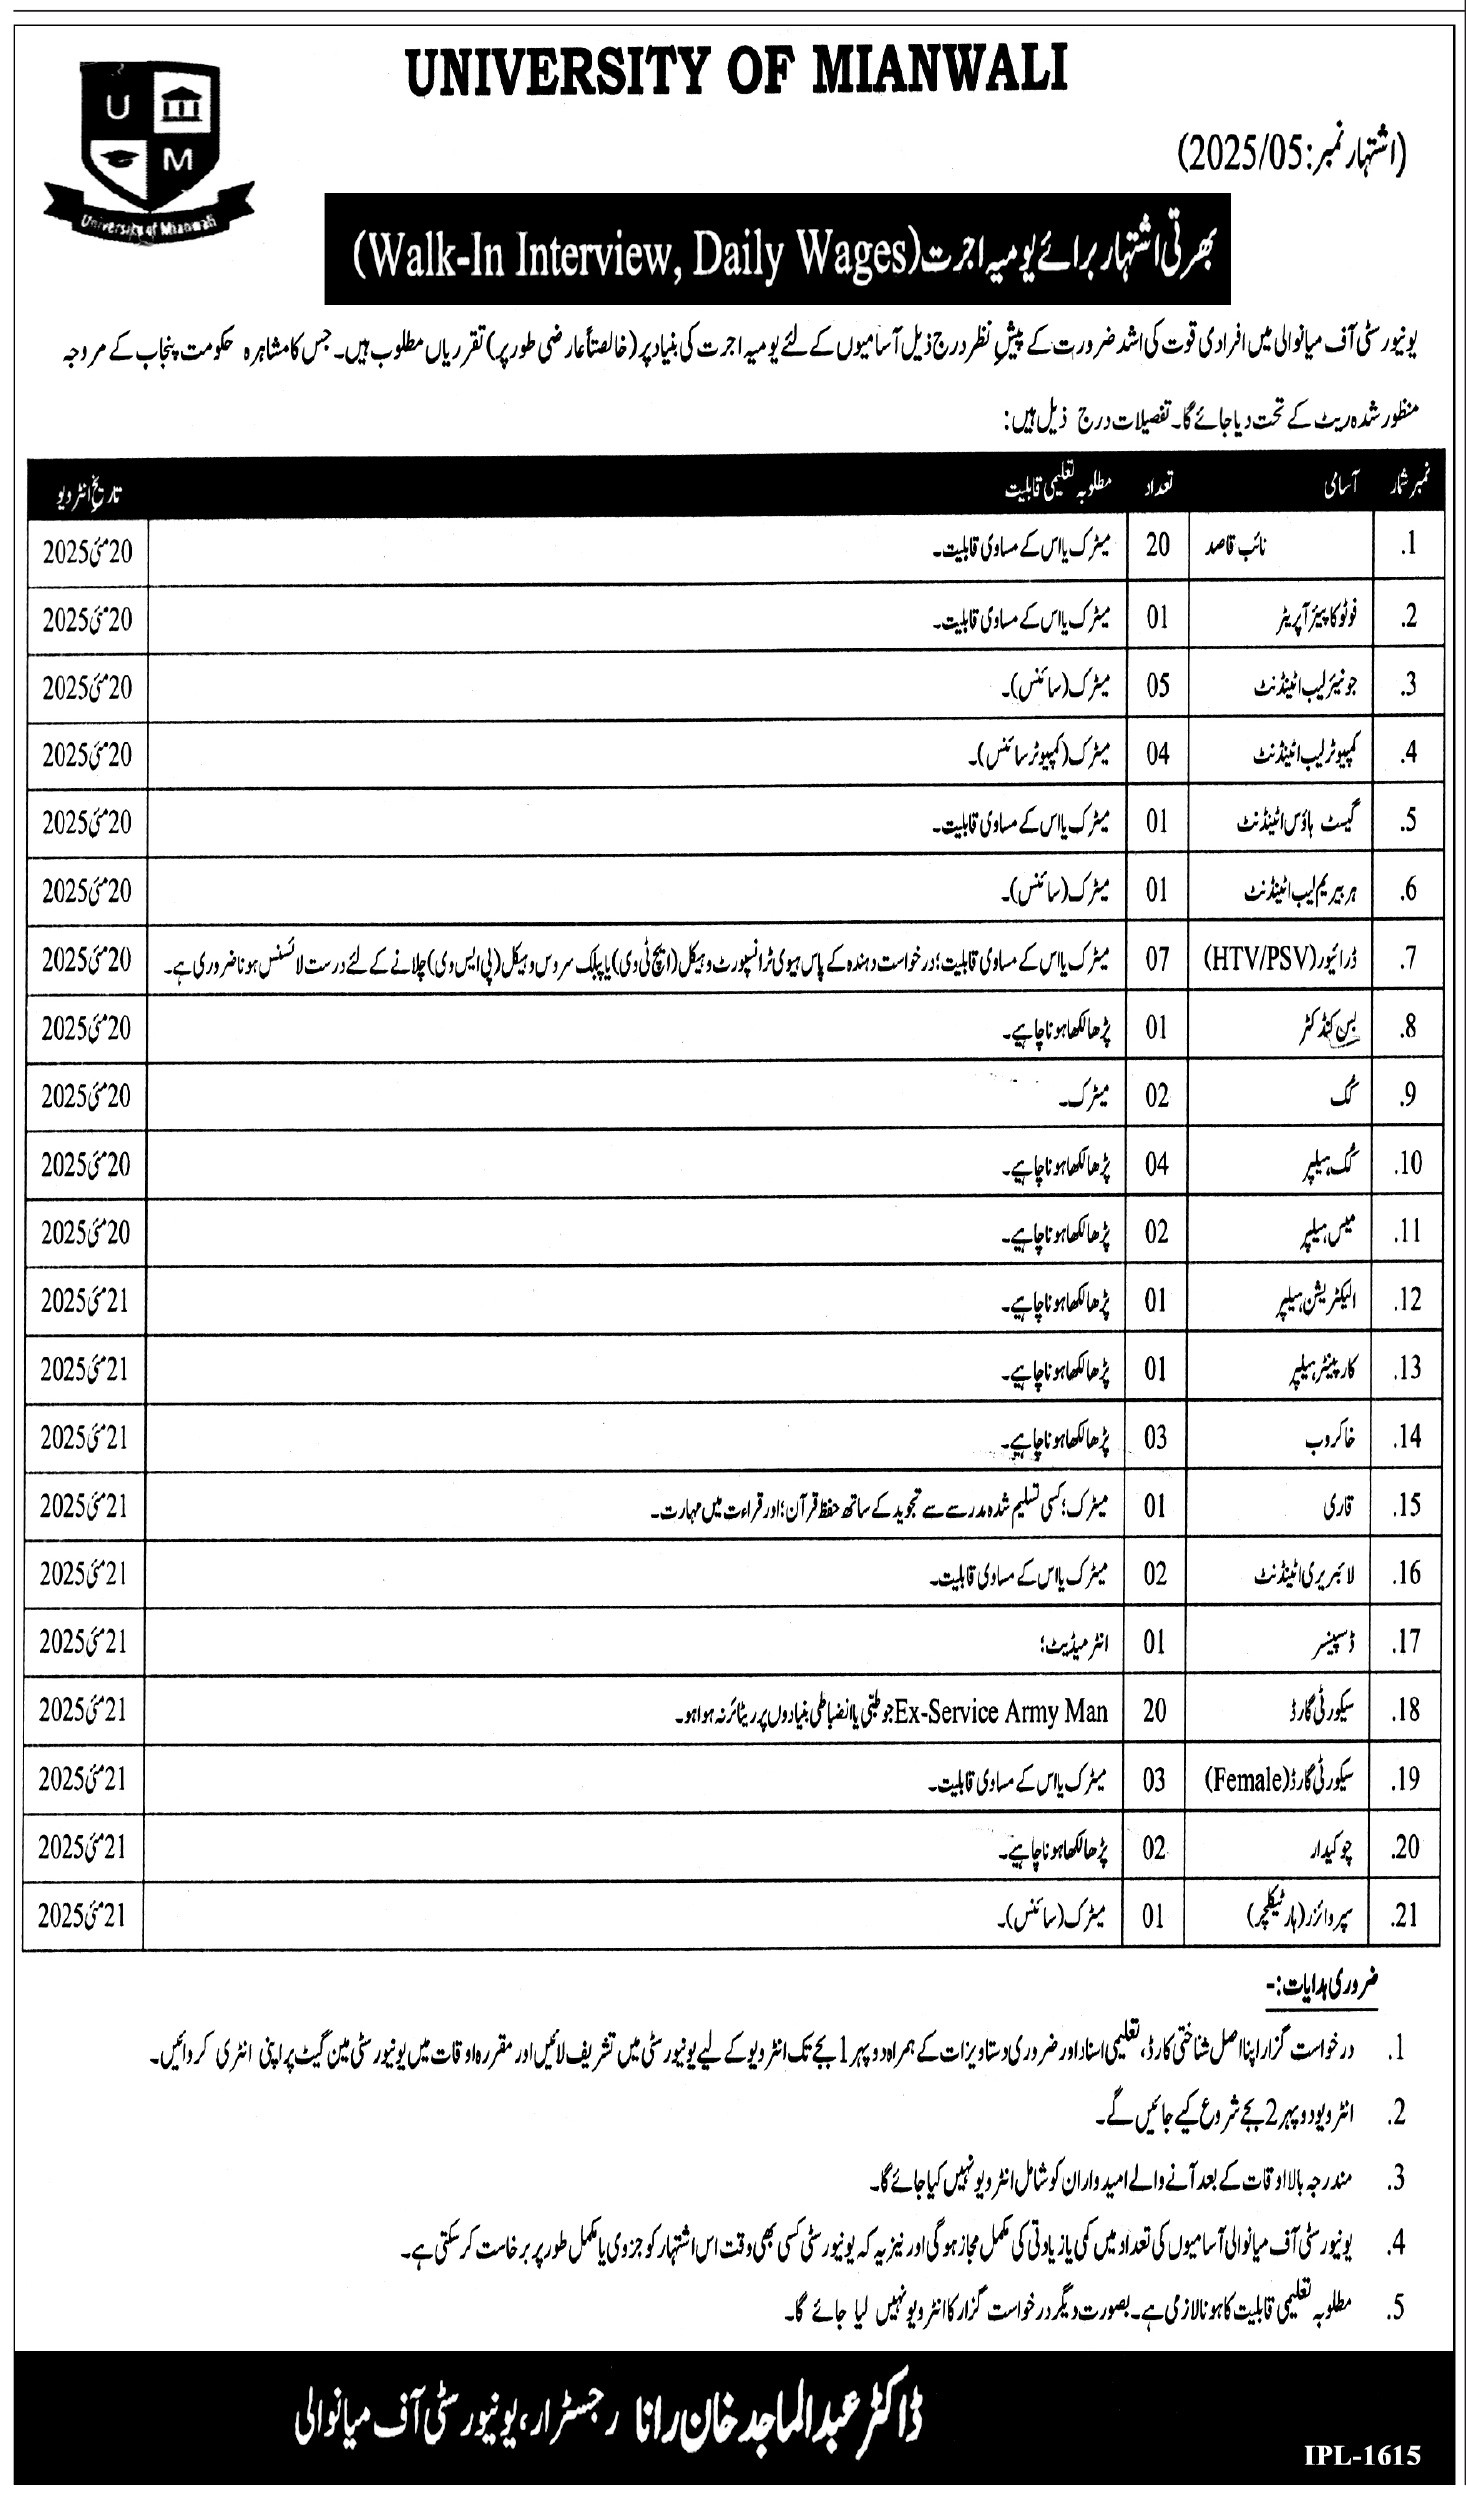 UNIVERSITY OF MIANWALI
U
M
University of Mianwali
(اشتہار نمبر: 2025/05)
بھرتی اشتہار برائے یومیہ اجرت (Walk-In Interview, Daily Wages)
یونیورسٹی آف میانوالی میں افرادی قوت کی اشد ضرورت کے پیشِ نظر درج ذیل آسامیوں کے لئے یومیہ اجرت کی بنیاد پر (خالصتاً عارضی طور پر) تقرریاں مطلوب ہیں۔ جس کا مشاہرہ حکومت پنجاب کے مروجہ
منظور شدہ ریٹ کے تحت دیا جائے گا۔ تفصیلات درج ذیل ہیں:
نمبر شمار آسامی تعداد مطلوبہ تعلیمی قابلیت تاریخ انٹرویو
1. نائب قاصد 20 میٹرک یا اس کے مساوی قابلیت۔ 20 مئی 2025
2. فوٹو کاپیئر آپریٹر 01 میٹرک یا اس کے مساوی قابلیت۔ 20 مئی 2025
3. جونیئر لیب اٹینڈنٹ 05 میٹرک (سائنس)۔ 20 مئی 2025
4. کمپیوٹر لیب اٹینڈنٹ 04 میٹرک (کمپیوٹر سائنس)۔ 20 مئی 2025
5. گیسٹ ہاؤس اٹینڈنٹ 01 میٹرک یا اس کے مساوی قابلیت۔ 20 مئی 2025
6. ہربیریم لیب اٹینڈنٹ 01 میٹرک (سائنس)۔ 20 مئی 2025
7. ڈرائیور (HTV/PSV) 07 میٹرک یا اس کے مساوی قابلیت؛ درخواست دہندہ کے پاس ہیوی ٹرانسپورٹ وہیکل (ایچ ٹی وی) یا پبلک سروس وہیکل (پی ایس وی) چلانے کے لئے درست لائسنس ہونا ضروری ہے۔ 20 مئی 2025
8. بس کنڈکٹر 01 پڑھا لکھا ہونا چاہیے۔ 20 مئی 2025
9. کک 02 میٹرک۔ 20 مئی 2025
10. کک ہیلپر 04 پڑھا لکھا ہونا چاہیے۔ 20 مئی 2025
11. میس ہیلپر 02 پڑھا لکھا ہونا چاہیے۔ 20 مئی 2025
12. الیکٹریشن ہیلپر 01 پڑھا لکھا ہونا چاہیے۔ 21 مئی 2025
13. کارپینٹر ہیلپر 01 پڑھا لکھا ہونا چاہیے۔ 21 مئی 2025
14. خاکروب 03 پڑھا لکھا ہونا چاہیے۔ 21 مئی 2025
15. قاری 01 میٹرک؛ کسی تسلیم شدہ مدرسے سے تجوید کے ساتھ حفظ قرآن؛ اور قراءت میں مہارت۔ 21 مئی 2025
16. لائبریری اٹینڈنٹ 02 میٹرک یا اس کے مساوی قابلیت۔ 21 مئی 2025
17. ڈسپنسر 01 انٹرمیڈیٹ؛ 21 مئی 2025
18. سیکورٹی گارڈ 20 Ex-Service Army Man جو طبی یا انضباطی بنیادوں پر ریٹائر نہ ہوا ہو۔ 21 مئی 2025
19. سیکورٹی گارڈ (Female) 03 میٹرک یا اس کے مساوی قابلیت۔ 21 مئی 2025
20. چوکیدار 02 پڑھا لکھا ہونا چاہیے۔ 21 مئی 2025
21. سپروائزر (ہارٹیکلچر) 01 میٹرک (سائنس)۔ 21 مئی 2025
ضروری ہدایات:-
1. درخواست گزار اپنا اصل شناختی کارڈ، تعلیمی اسناد اور ضروری دستاویزات کے ہمراہ دوپہر 1 بجے تک انٹرویو کے لیے یونیورسٹی میں تشریف لائیں اور مقررہ اوقات میں یونیورسٹی مین گیٹ پر اپنی انٹری کروائیں۔
2. انٹرویو دوپہر 2 بجے شروع کیے جائیں گے۔
3. مندرجہ بالا اوقات کے بعد آنے والے امیدواران کو شامل انٹرویو نہیں کیا جائے گا۔
4. یونیورسٹی آف میانوالی آسامیوں کی تعداد میں کمی یا زیادتی کی مکمل مجاز ہوگی اور نیز یہ کہ یونیورسٹی کسی بھی وقت اس اشتہار کو جزوی یا مکمل طور پر برخاست کر سکتی ہے۔
5. مطلوبہ تعلیمی قابلیت کا ہونا لازمی ہے۔ بصورت دیگر درخواست گزار کا انٹرویو نہیں لیا جائے گا۔
ڈاکٹر عبدالماجد خان رانا رجسٹرار، یونیورسٹی آف میانوالی
IPL-1615